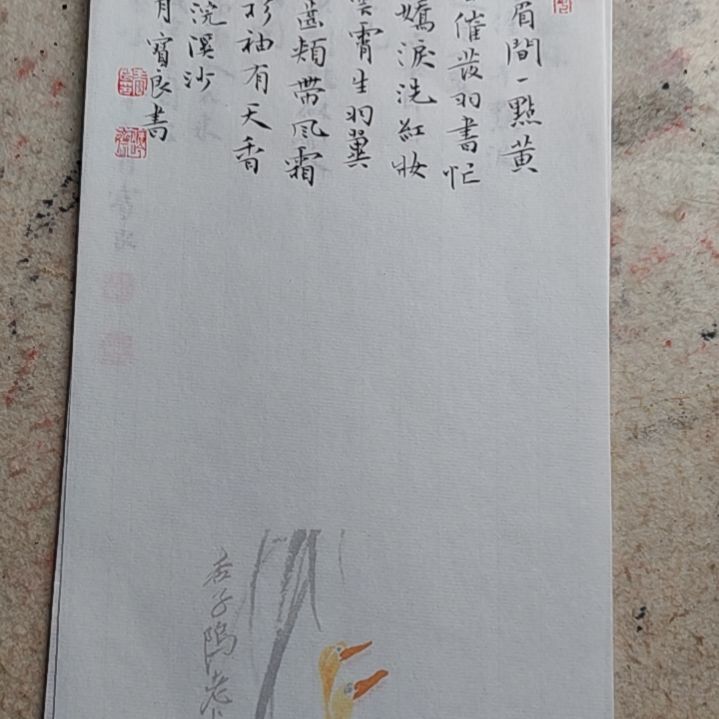 眉間一點黃
催發羽書忙
嬌淚洗紅妝
霄生羽翼
齒頰帶風霜
衫袖有天香
浣溪沙
月寶良書
杏子隖老